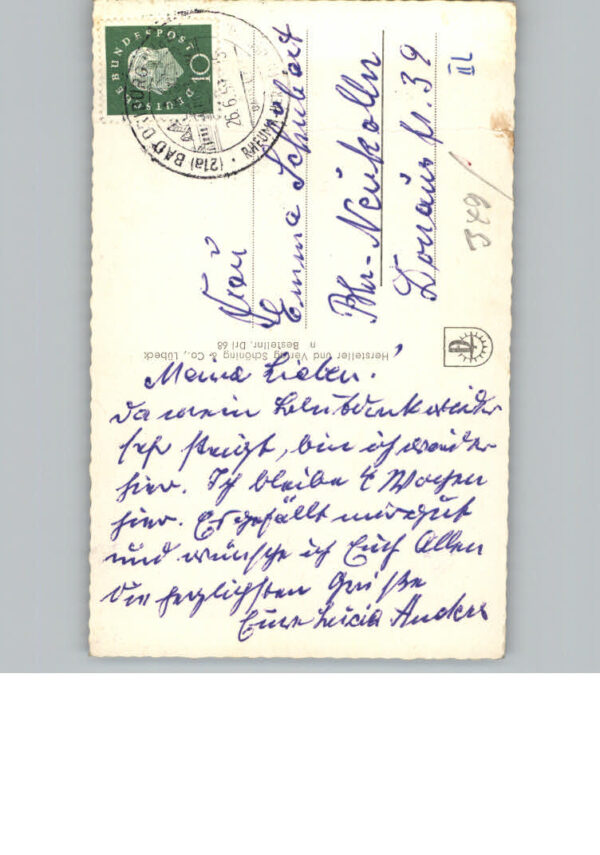 DEUTSCHE BUNDESPOST
10
(21a) BAD DRIBURG
26.6.59
RHEUMA
Frau
Emma Schubert
Bln-Neukölln
Donaustr. 39
III
349/
Hersteller und Verlag Schöning & Co., Lübeck
Bestellnr. Dri 68
Meine Lieben!
Da mein Blutdruck wieder
sehr steigt, bin ich wieder
hier. Ich bleibe 4 Wochen
hier. Es gefällt mir gut
und wünsche ich Euch Allen
die herzlichsten Grüße
Eure Lucia Anders